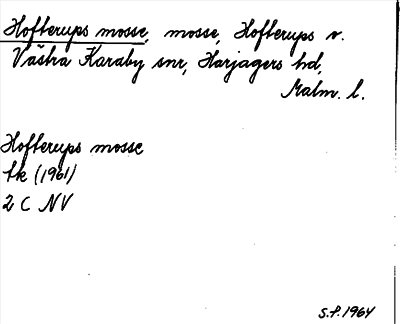 Hofterups mosse, mosse, Hofterups v.
Västra Karaby snr, Harjagers hd,
Malm. l.
Hofterups mosse
tk (1961)
2 C NV
S.P. 1964